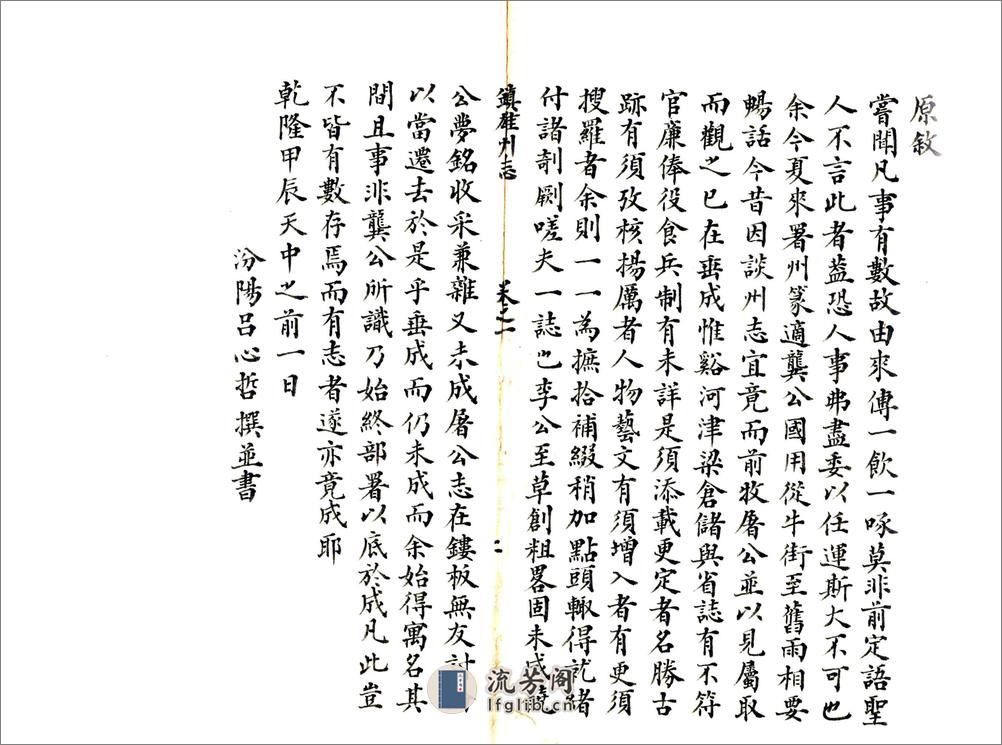 原敘
嘗聞凡事有數故由來傳一飲一啄莫非前定語聖
人不言此者蓋恐人事弗盡委以任運斯大不可也
余今夏來署州篆適龔公國用從牛街至舊雨相要
暢話今昔因談州志宜竟而前牧屠公並以見屬取
而觀之已在垂成惟谿河津梁倉儲與省誌有不符
官廉俸役食兵制有未詳是須添載更定者名勝古
跡有須攷核揚厲者人物藝文有須增入者有更須
搜羅者余則一一為摭拾補綴稍加點頭輙得就緒
付諸剞劂嗟夫一誌也李公至草創粗畧固未成
鎮雄州志
卷之一
二
公夢銘收采兼雜又未成屠公志在鏤板無友
以當遷去於是乎垂成而仍未成而余始得寓名其
間且事非龔公所識乃始終部署以底於成凡此豈
不皆有數存焉而有志者遂亦竟成耶
乾隆甲辰天中之前一日
汾陽呂心哲撰並書
流芳阁
lfglib.cn